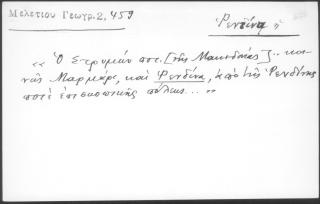 Μελετίου Γεωγρ. 2, 459
Ῥεντίνα
« Ὁ Στρυμών ποτ. [τῆς Μακεδονίας] .. κοι-
νῶς Μαρμάρι, καὶ Ῥενδίνα, ἀπὸ τῆς Ῥενδίνης
ποτὲ ἐπισκοπικῆς πόλεως ... »